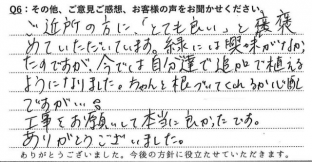 Q6：その他、ご意見ご感想、お客様の声をお聞かせください
ご近所の方に、「とても良い」と褒
めていただいています。緑には興味がなかっ
たのですが、今では自分達で追加で植える
ようになりました。ちゃんと根づいてくれるか心配
ですが…。
工事をお願いして本当に良かったです。
ありがとうございました。
ありがとうございました。今後の方針に役立たせていただきます。